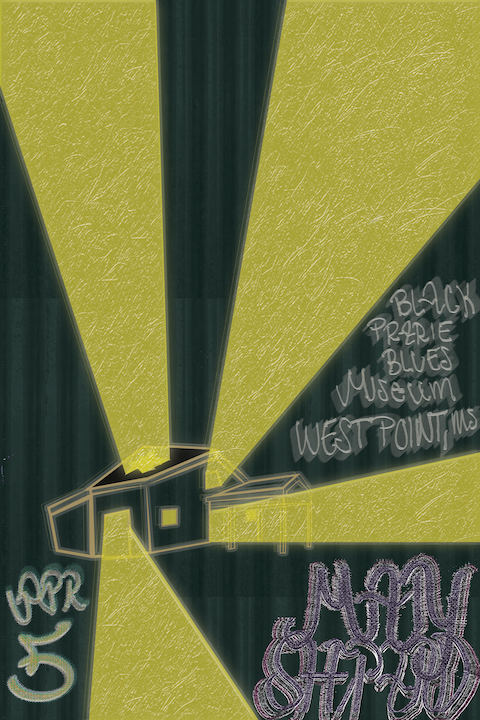 BLACK
PRARIE
BLUES
MUSEUM
WEST POINT, MS
APR
5